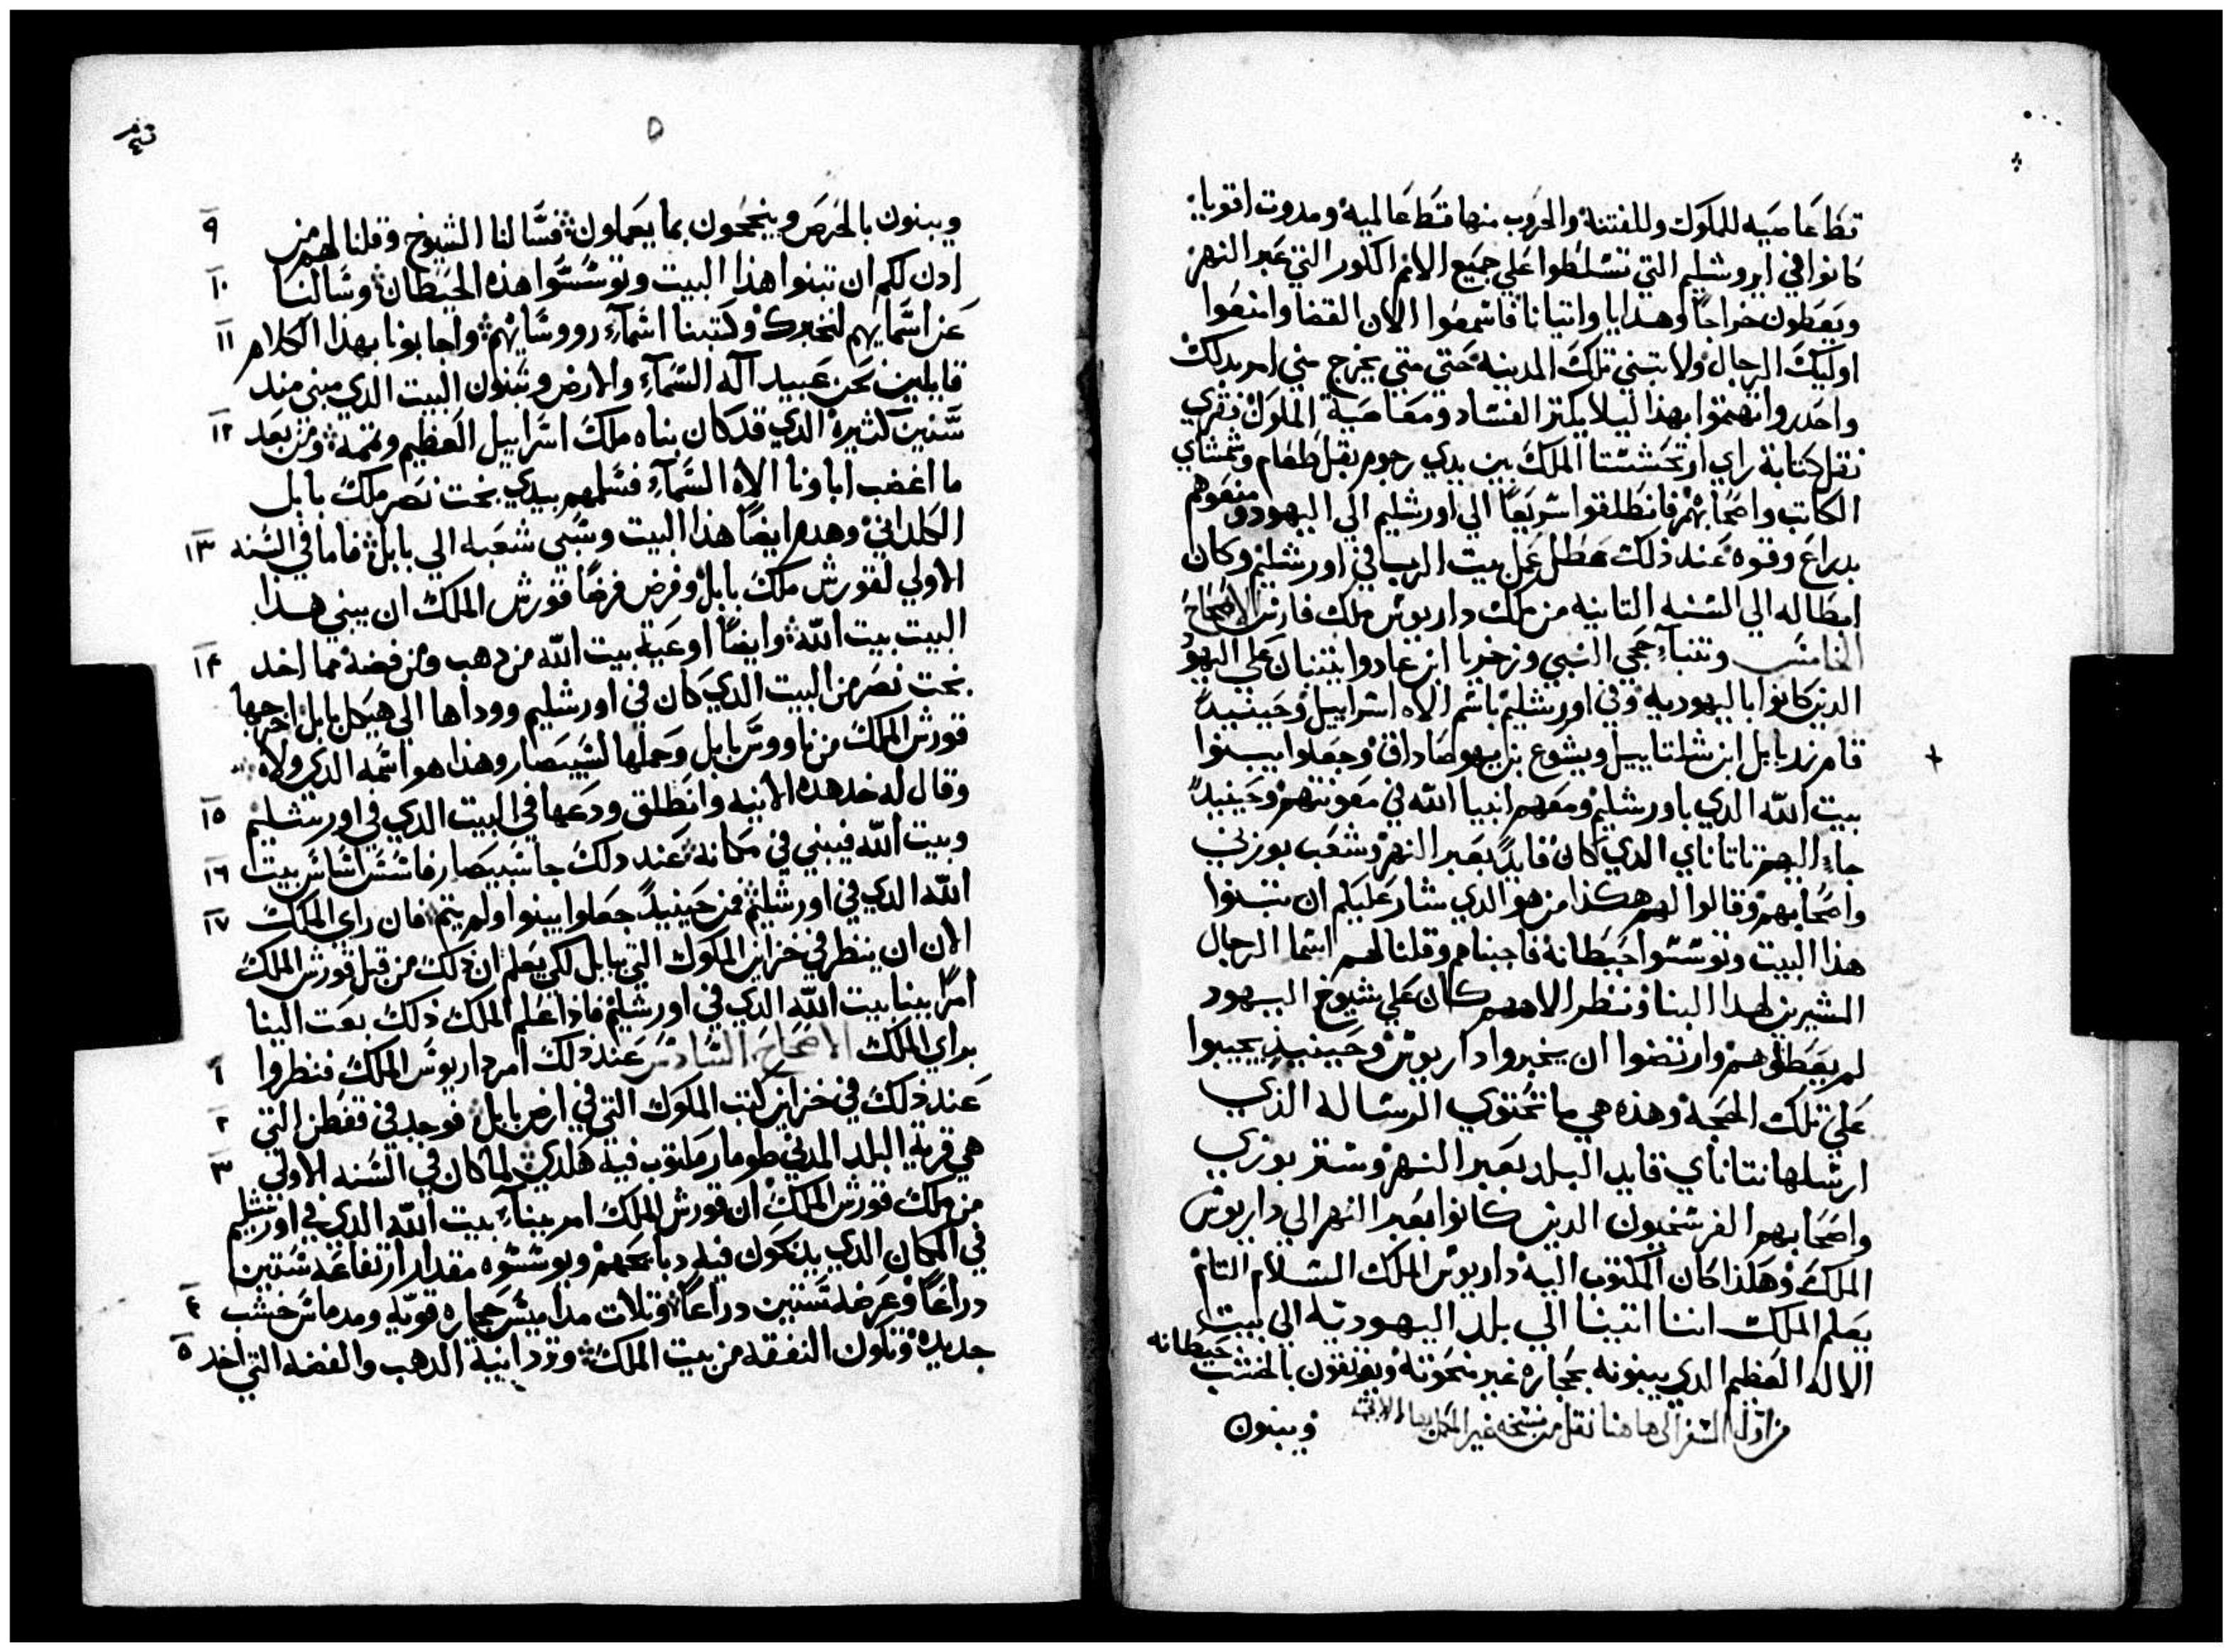 قطا عاصيه للملوك وللفتنة والحروب منها قطاعا لمية ومدوت اقويا
كانوا في ايروشليم التي تسلطوا علي جميع الامم الكور التي عبر النهر
ويعطون خراجا وهدايا واتيانا فاسمعوا الان القضا وامنعوا
اوليك الرجال ولا تبني تلك المدينة حتي متي يخرج مني امر بدلك
واحدروا انهموا بهذا ليلا يكتر الفساد ومعاصية الملوك فقري
نقل كتابة راي ارتحششتا الملك بين يدي رجوم بقل طعام وشمشاي
الكاتب واصحابهم فانطلقوا سريعا الي اورشليم الي اليهود ومنعوهم
بدراع وقوه عند ذلك عطل عمل بيت الرب في اورشليم وكان
ابطاله الي السنه التانيه من ملك داريوش ملك فارس الاصحاح
الخامس وتنبا حجي النبي وزخريا ابن عادوا يتنبان علي اليهو
الدين كانوا باليهوديه وفي اورشليم باسم الاه اسراييل وحينيد
قام زربابل ابن شلتاييل ويشوع بن يهوصاداق وجعلوا يبنوا
بيت الله الدي باورشليم ومعهم انبيا الله في معونتهم وحينيد
جاء اليهم تاتاناي الدي كان قايد بعبر النهر وشعب بوزني
واصحابهم وقالوا لهم هكذا من هو الدي شار عليكم ان تبنوا
هذا البيت وتوسسوا حيطانة فاجبناهم وقلنا لهم اسما الرجال
المشيرين لهدا البنا ونظر الاههم كان علي شيوخ اليهود
لم يعطلوهم وارتضوا ان يخبروا داريوش وحينيد يجيبوا
علي تلك الحجة وهذه هي ما تحتوي الرساله الذي
ارسلها نتاناي قايد البلد بعبر النهر وشتر بوزني
واصحابهم الفرسخيون الدين كانوا بعبر النهر الي داريوش
الملك وهكذا كان المكتوب اليه داريوش الملك السلام التام
يعلم الملك اننا اتينا الي بلد اليهوديه الي بيت
الاله العظيم الدي يبنونه بحجاره غير منحوتة ويفرقون بالخشب حيطانه
من اول السفر الي هاهنا نقل من نسخه غير
ويبنون
ق
ويبنون بالحرص وينجحون بما يعملون فسالنا الشيوخ وقلنا لهم من ٩
ادن لكم ان تبنوا هذا البيت وتوسسوا هذه الحيطان وسالنا ١٠
عن اسمايهم لنخبرك وكتبنا اسماء رووسايهم واجابونا بهذا الكلام ١١
قايلين نحن عبيد آله السماء والارض ونبنون البيت الدي مبني مند
سنين كثيرة الدي قد كان بناه ملك اسراييل العظيم وتممه ومن بعد ١٢
ما اغضب اباونا الاه السماء فسلمهم بيدي بخت نصر ملك بابل
الكلداني وهدم ايضا هذا البيت وسبي شعبه الي بابل فاما في السنه ١٣
الاولي لقورش ملك بابل وفرض فرضا قورش الملك ان يبني هذا
البيت بيت الله وايضا اوعية بيت الله من دهب ومن فضة مما اخد ١٤
بخت نصر من البيت الدي كان في اورشليم ووداها الي هيكل بابل اخرجها
قورش الملك من ناووس بابل وحملها لشيبصار وهذا هو اسمه الدي ولاه
وقال له خد هده الانيه وانطلق ودعها في البيت الدي في اورشليم ١٥
وبيت الله فيبني في مكانه عند دلك جا شيبصار فاسس اساس بيت ١٦
الله الدي في اورشليم فمن حينيد جعلوا يبنوا ولم يتم فان راي الملك ١٧
الان ان ينظر في خزاين الملوك التي ببابل لكي يعلم ان ذلك من قبل قورش الملك
امر ببنا بيت الله الدي في اورشليم فاذا علم الملك ذلك بعت الينا
براي الملك الاصحاح السادس عند ذلك امر داريوس الملك فنظروا ١
عند ذلك في خزاين كتب الملوك التي في ارض بابل فوجد في قفطن التي ٢
هي قرية البلد المدني طومار مكتوب فيه هكدي لما كان في السنه الاولي ٣
من ملك قورش الملك ان قورش الملك امر ببناء بيت الله الدي في اورشليم
في المكان الدي يدكون فيه دبايحهم ويوسسوه مقدار ارتفاعه ستين
دراعا وعرضه ستين دراعا وتلات مداميس حجاره قويه ومدماس خشب ٤
جديدة وتكون النفقه من بيت الملك وترد انية الدهب والفضه التي اخد ٥